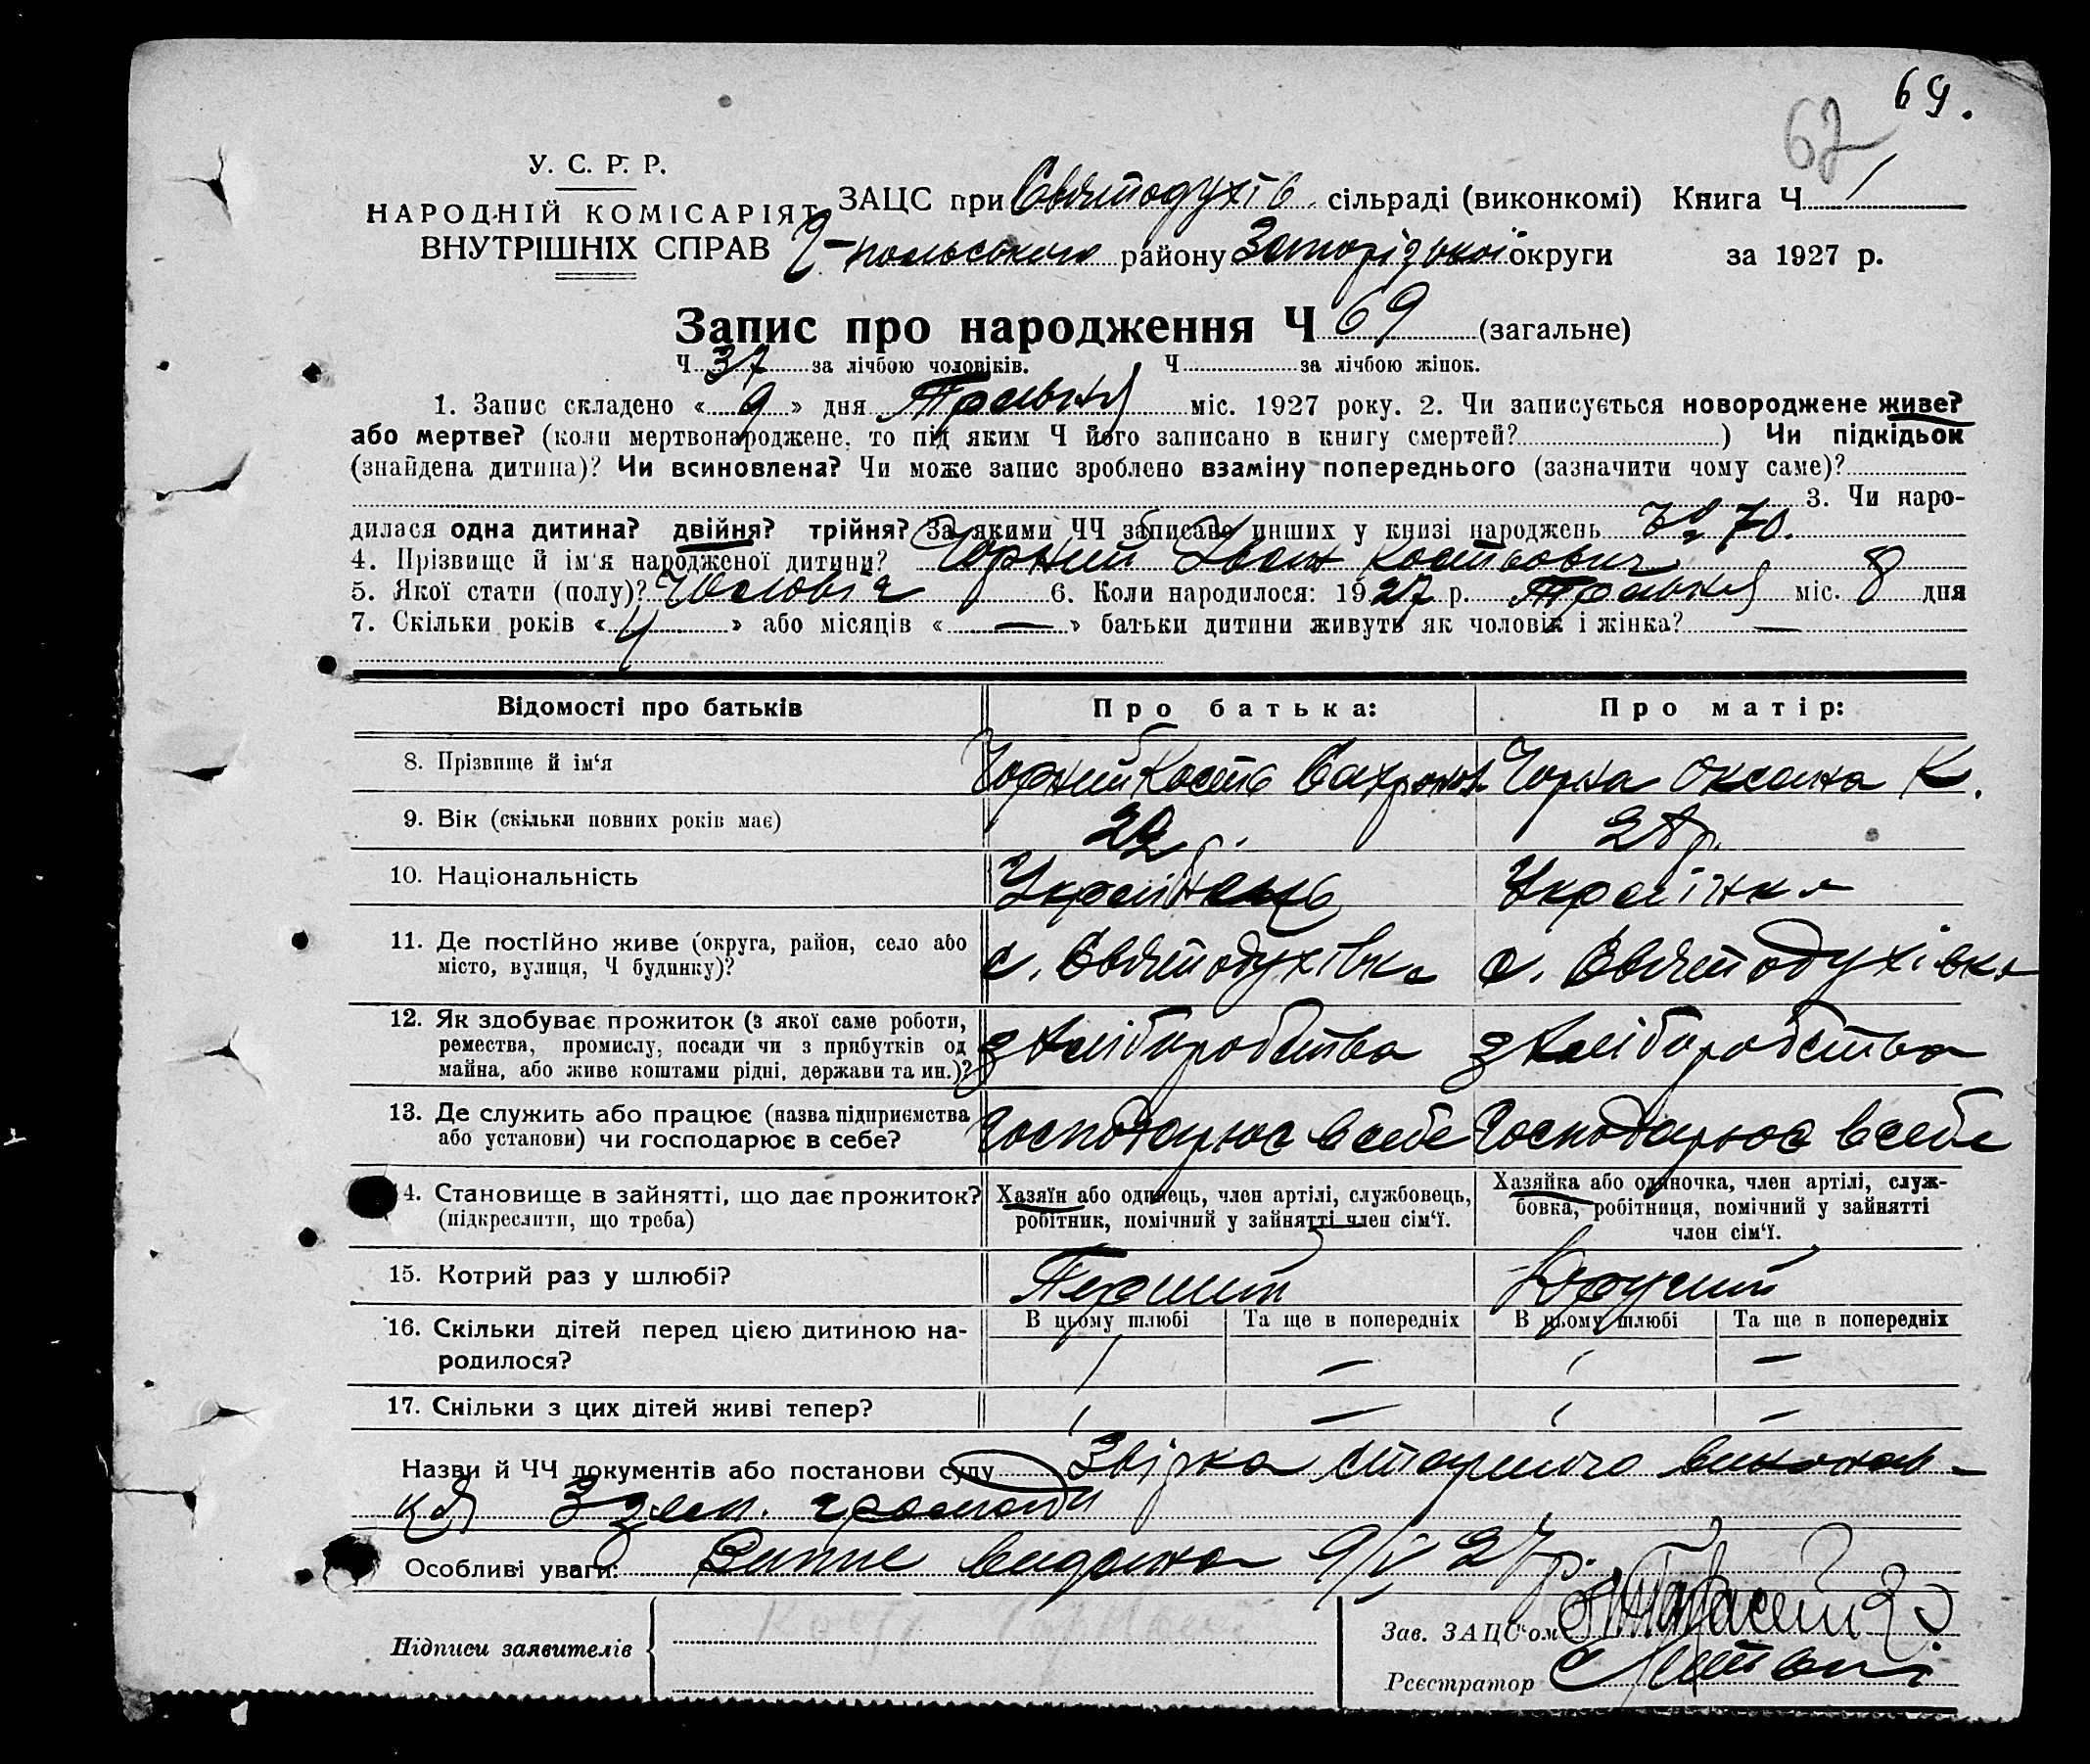 69.
62
У. С. Р. Р.
НАРОДНІЙ КОМІСАРІЯТ
ВНУТРІШНІХ СПРАВ
ЗАЦС при Святодухів. сільраді (виконкомі) Книга Ч. 1
Ч-польського району Запорізької округи за 1927 р.
Запис про народження Ч 69 (загальне)
Ч. 37 за лічбою чоловіків. Ч. за лічбою жінок.
1. Запис складено « 9 » дня Травня міс. 1927 року. 2. Чи записується новороджене живе?
або мертве? (коли мертвонароджене, то під яким Ч його записано в книгу смертей? ) Чи підкідьок
(знайдена дитина)? Чи всиновлена? Чи може запис зроблено взаміну попереднього (зазначити чому саме)?
3. Чи наро-
дилася одна дитина? двійня? трійня? За якими ЧЧ записано инших у книзі народжень 70.
4. Прізвище й ім'я народженої дитини? Чорний Іван Костьович
5. Якої стати (полу)? Чоловіч 6. Коли народилося: 1927 р. Травня міс. 8 дня
7. Скільки років « 4 » або місяців « — » батьки дитини живуть як чоловік і жінка? —
Відомості про батьків Про батька: Про матір:
8. Прізвище й ім‘я Чорний Кость Вахромов. Чорна Оксана К.
9. Вік (скільки повних років має) 22 р. 28 р.
10. Національність Українець Українка
11. Де постійно живе (округа, район, село або
місто, вулиця, Ч будинку)? с. Святодухівка с. Святодухівка
12. Як здобуває прожиток (з якої саме роботи,
ремества, промислу, посади чи з прибутків од
майна, або живе коштами рідні, держави та ин.)? з хліборобства з хліборобства
13. Де служить або працює (назва підприємства
або установи) чи господарює в себе? Господарює в себе Господарює в себе
14. Становище в зайнятті, що дає прожиток?
(підкреслити, що треба)
Хазяїн або одинець, член артілі, службовець,
робітник, помічний у зайнятті член сім‘ї.
Хазяйка або одиночка, член артілі, служ-
бовка, робітниця, помічний у зайнятті
член сім‘ї.
15. Котрий раз у шлюбі? Перший Другий
В цьому шлюбі Та ще в попередніх В цьому шлюбі Та ще в попередніх
16. Скільки дітей перед цією дитиною на-
родилося? 1 — 1 —
17. Скільки з цих дітей живі тепер? 1 — 1 —
Назви й ЧЧ документів або постанови суду Звірка старшого виконав-
ця 3 зем. громади
Особливі уваги: Випис видана 9/V 27 р.
Підписи заявителів Кость Чорний
Зав. ЗАЦС‘ом
Реєстратор